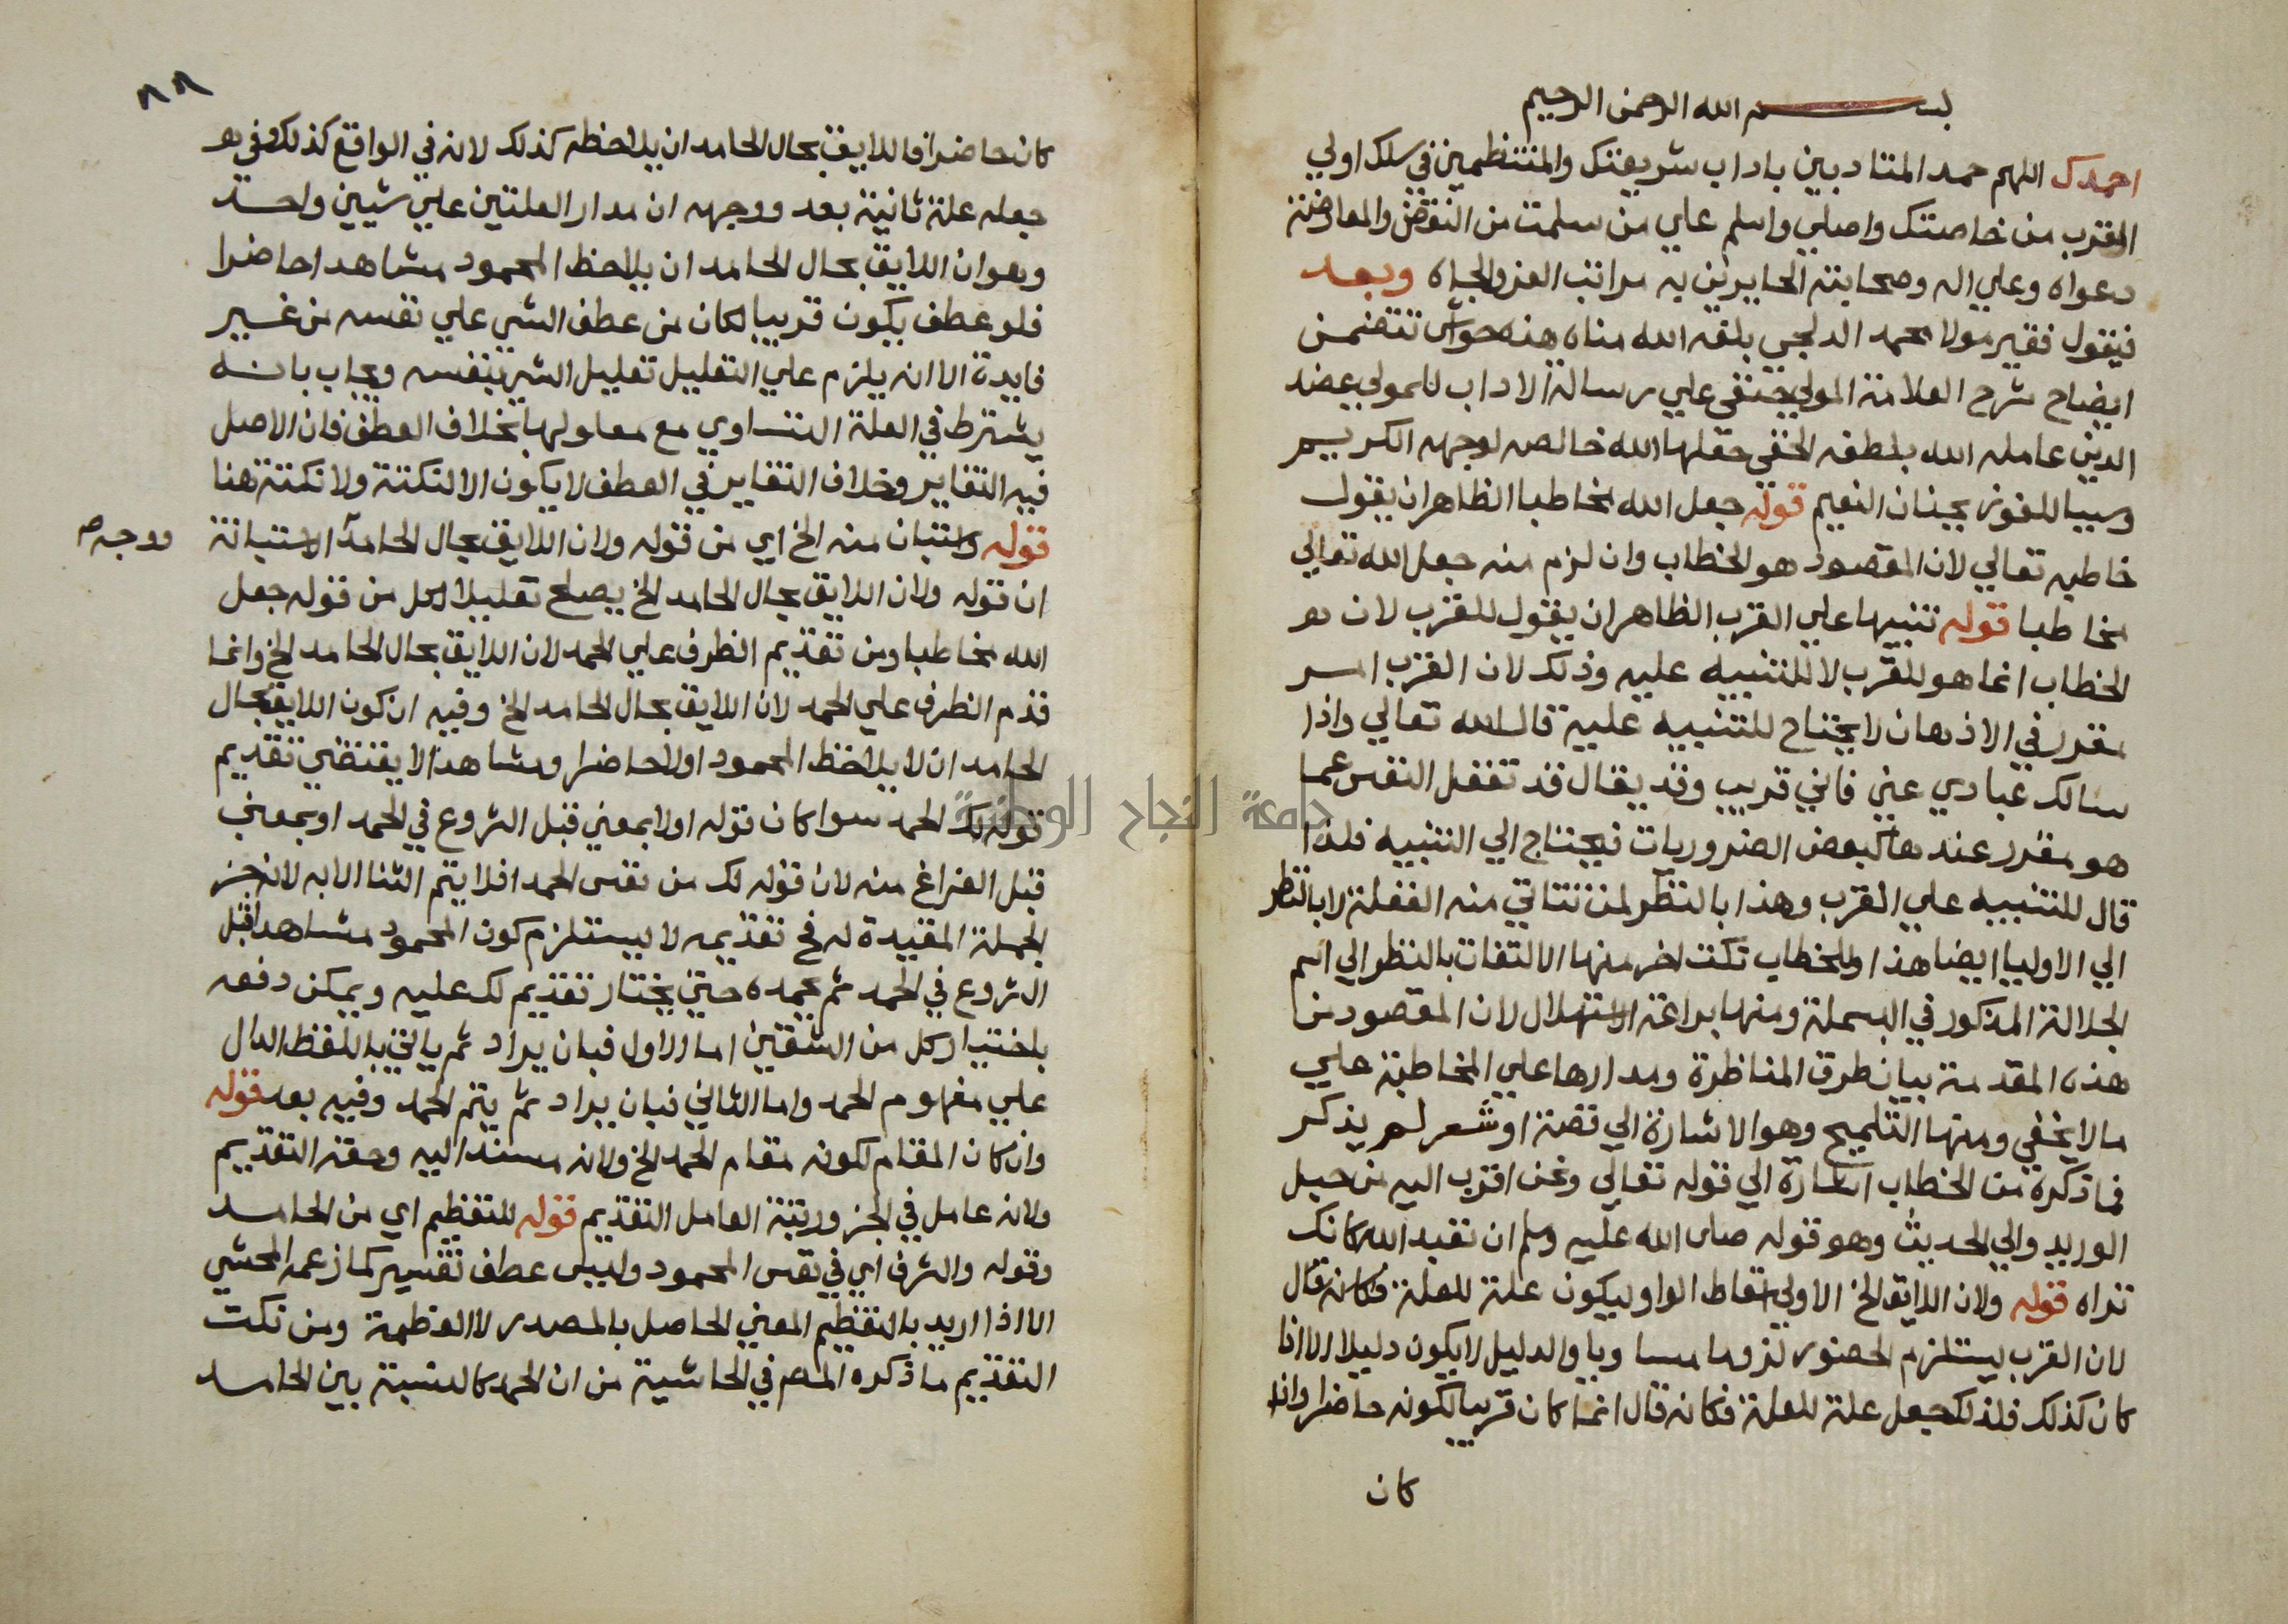 بسم الله الرحمن الرحيم
احمدك اللهم حمد المتادبين باداب شريعتك والمنتظمين في سلك اولي
القرب من خاصتك واصلي واسلم علي من سلمت من النقض والمعارضة
دعواه وعلي اله وصحابته الحايزين به مراتب العز والجاه وبعد
فيقول فقير مولاه محمد الدلجي بلغه الله مناه هذه حواش تتضمن
ايضاح شرح العلامة المولي حنفي علي رسالة الاداب للمولي عضد
الدين عامله الله بلطفه الخفي جعلها الله خالصه لوجهه الكريم
وسببا للفوز بجنان النعيم قوله جعل الله مخاطبا الظاهر ان يقول
خاطبه تعالي لان المقصود هو الخطاب وان لزم منه جعل الله تعالي
مخاطبا قوله تنبيها علي القرب الظاهر ان يقول للقرب لان هو
الخطاب انما هو للقرب لا للتنبيه عليه وذلك لان القرب امر
مقرر في الاذهان لا يحتاج للتنبيه عليه قال الله تعالي واذا
سالك عبادي عني فاني قريب وقد يقال قد تغفل النفس عما
هو مقرر عندها كبعض الضروريات فيحتاج الي التنبيه فلذا
قال للتنبيه علي القرب وهذا بالنظر لمن تتاتي منه الغفلة لا بالنظر
الي الاوليا ايضا هذا وللخطاب نكت اخر منها الالتفات بالنظر الي اسم
الجلالة المذكور في البسملة ومنها براعة الاستهلال لان المقصود من
هذه المقدمة بيان طرق المناظرة ومدارها علي المخاطبة علي
ما لا يخفي ومنها التلميح وهو الاشارة الي قصة او شعر لم يذكر
فما ذكره من الخطاب اشارة الي قوله تعالي ونحن اقرب اليه من حبل
الوريد والي الحديث وهو قوله صلى الله عليه وسلم ان تعبد الله كانك
تراه قوله ولان اللايق الخ الاولي اسقاط الواو ليكون علة للعلة فكانه قال
لان القرب يستلزم الحضور لزوما مساويا والدليل لا يكون دليلا الا اذا
كان كذلك فلذلك جعل علة للعلة فكانه قال انما كان قريبا لكونه حاضرا واذا
كان
٨٨
كان حاضرا فاللايق بحال الحامد ان يلاحظه كذلك لانه في الواقع كذلك وفي هو
جعله علة ثانية بعد ووجهه ان مدار العلتين علي شيين واحد
وهو ان اللايق بحال الحامد ان يلاحظ المحمود مشاهدا حاضرا
فلو عطف بكون قريبا لكان من عطف الشي علي نفسه من غير
فايدة الا انه يلزم علي التعليل تعليل الشي بنفسه ويجاب بانه
يشترط في العلة التساوي مع معلولها بخلاف العطف فان الاصل
فيه التغاير وخلاف التغاير في العطف لا يكون الا لنكتة ولا نكتة هنا
قوله واستبان منه الخ اي من قوله ولان اللايق بحال الحامد الاستبانة
ووجه صح
ان قوله ولان اللايق بحال الحامد الخ يصلح تعليلا لكل من قوله جعل
الله مخاطبا ومن تقديم الظرف علي الحمد لان اللايق بحال الحامد الخ وانما
قدم الظرف علي الحمد لان اللايق بحال الحامد الخ وفيه ان كون اللايق بحال
الحامد ان لا يلاحظ المحمود اولا حاضرا ومشاهدا لا يقتضي تقديم
قوله لك الحمد سوا كان قوله اولا بمعني قبل الشروع في الحمد او بمعني
قبل الفراغ منه لان قوله لك من نفس الحمد اذ لا يتم الثنا الا به لانه جز
الجملة المقيدة له فح تقديمه لا يستلزم كون المحمود مشاهدا قبل
الشروع في الحمد ثم بحمده حتي يختار تقديم لك عليه ويمكن دفعه
باختيار كل من الشقين اما الاول فبان يراد ثم ياتي باللفظ الدال
علي مفهوم الحمد واما الثاني فبان يراد ثم يتم الحمد وفيه بعد قوله
وان كان المقام لكونه مقام الحمد الخ ولانه مسند اليه وحقه التقديم
ولانه عامل في الجز ورتبة العامل التقديم قوله للتعظيم اي من الحامد
وقوله والشرف اي في نفس المحمود وليس عطف تفسير كما زعمه المحشي
الا اذا اريد بالتعظيم المعني الحاصل بالمصدر لا العظمة ومن نكت
التقديم ما ذكره المصم في الحاشية من ان الحمد كالنسبة بين الحامد
جامعة النجاح الوطنية